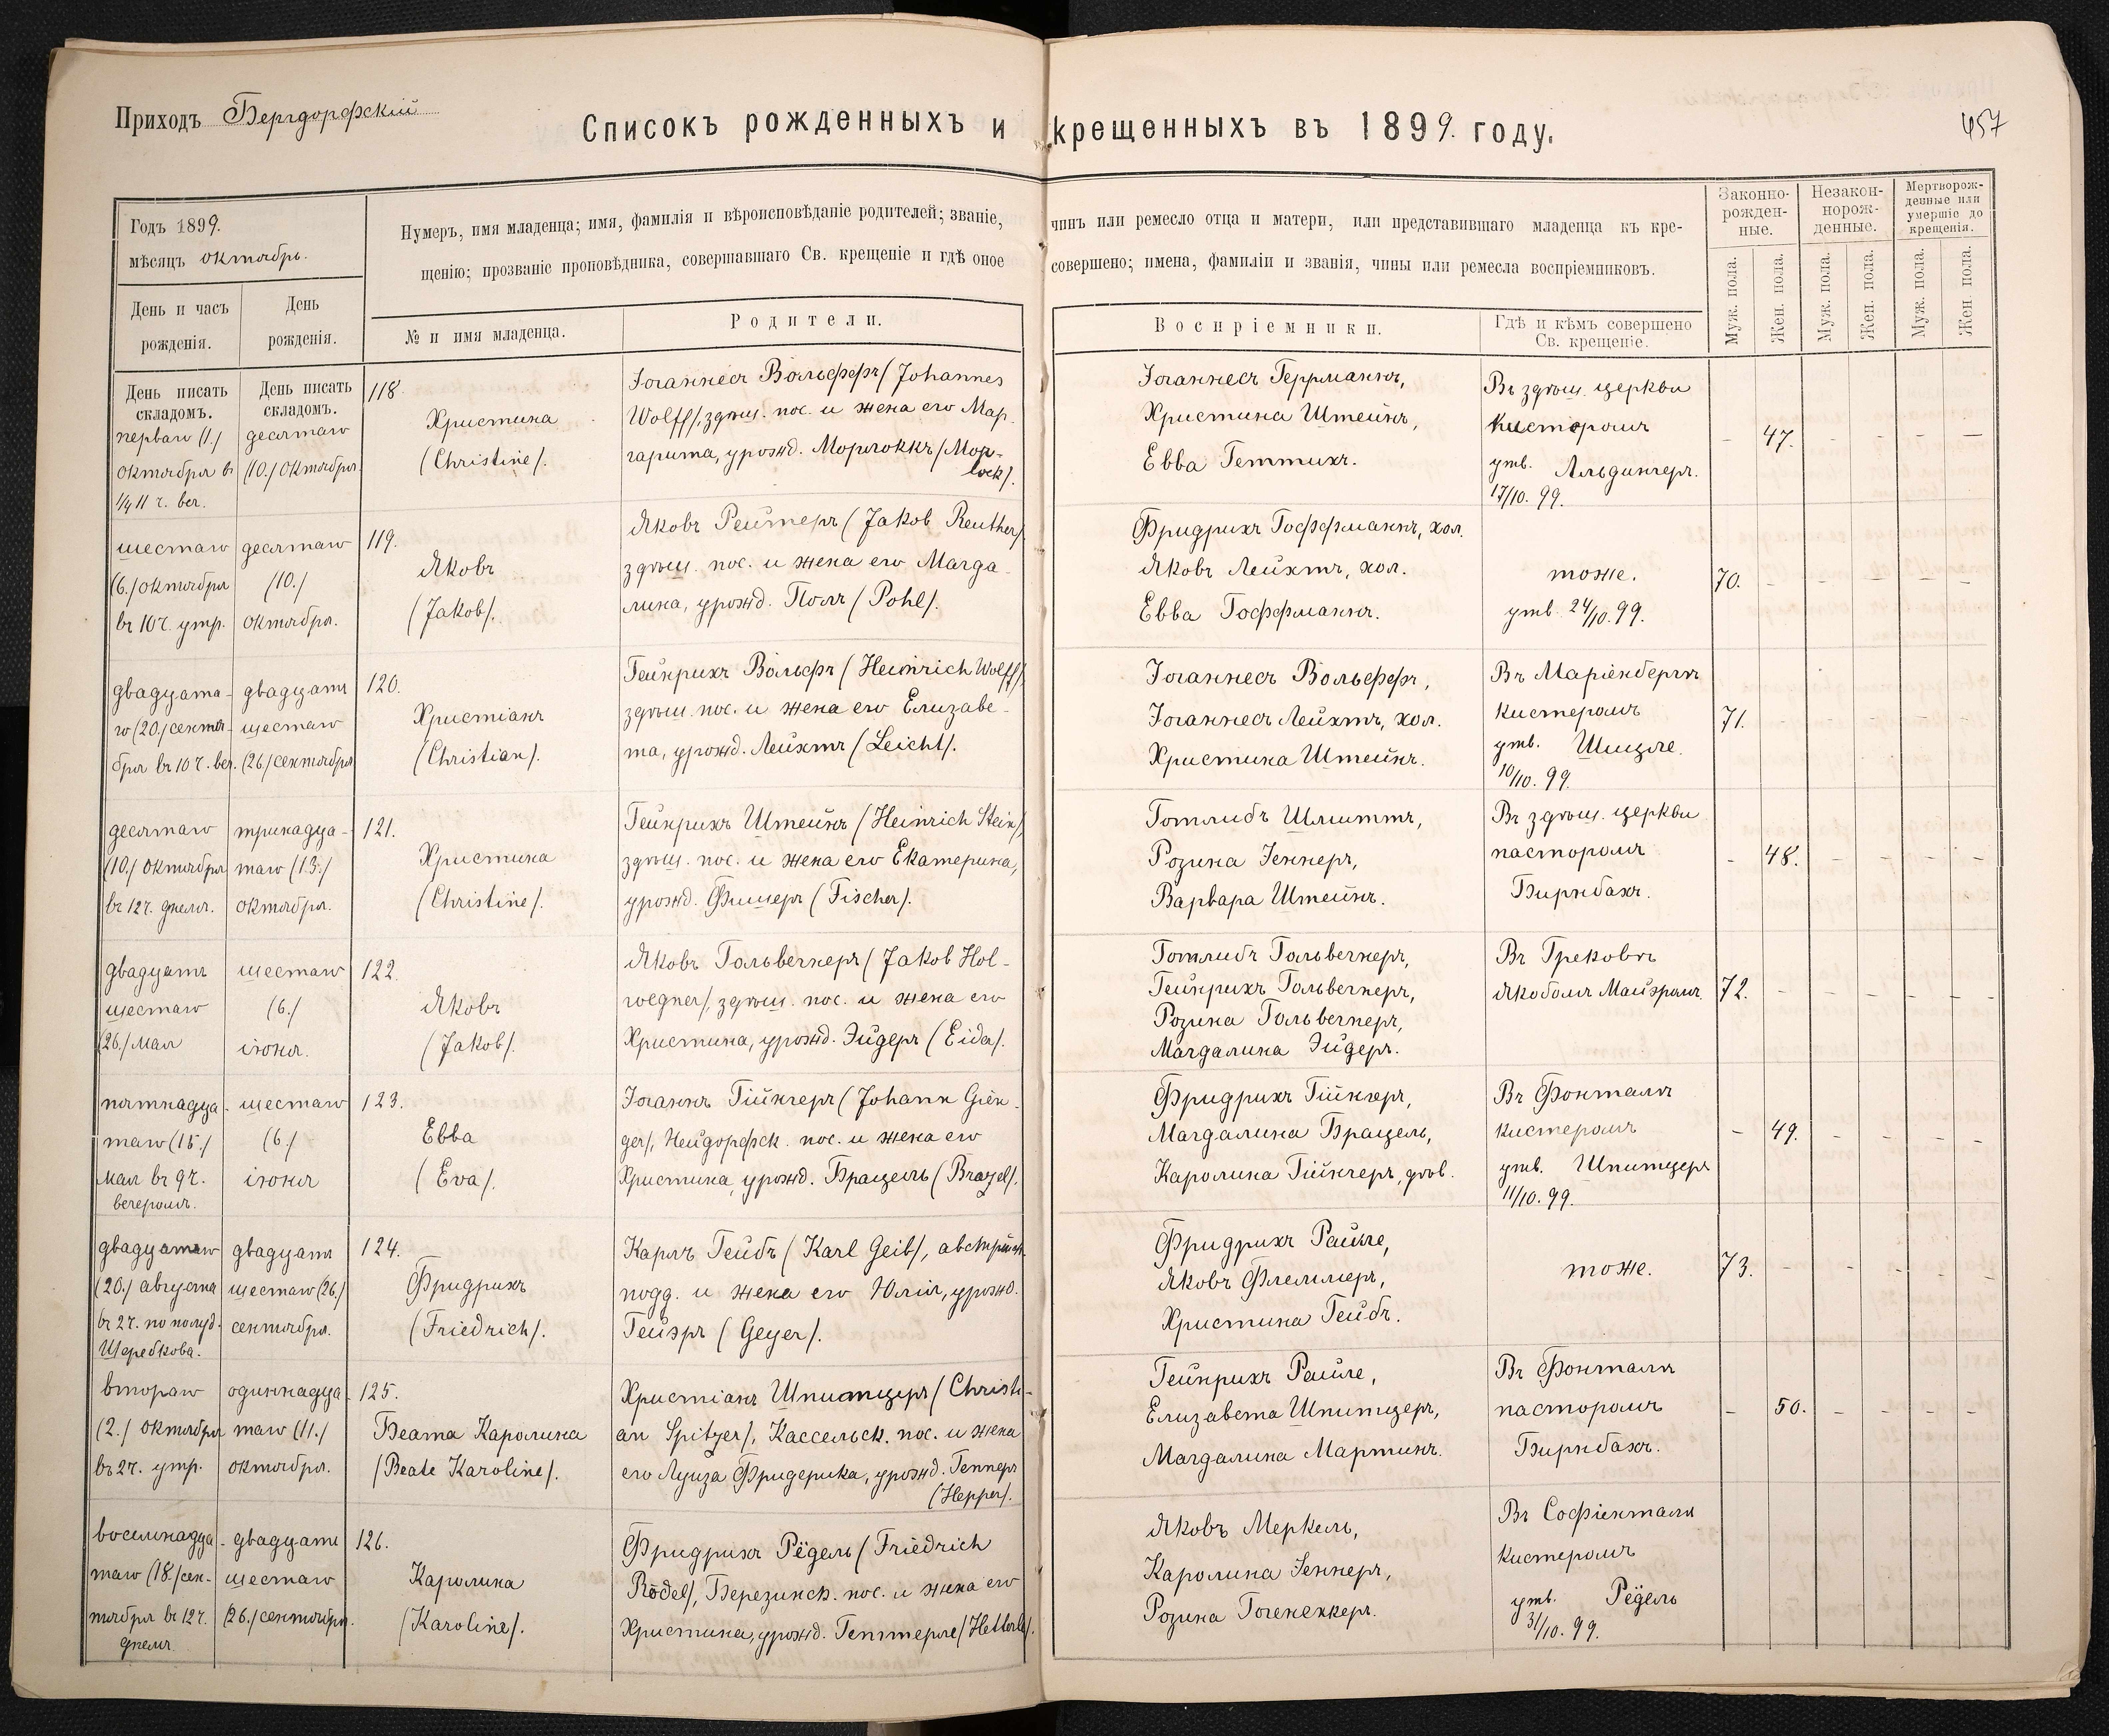 Приходъ Бергдорфскій
Списокъ рожденныхъ и крещенныхъ въ 1899. году.
457
Годъ 1899.
мѣсяцъ октябрь.
Нумеръ, имя младенца; имя, фамилія и вѣроисповѣданіе родителей; званіе, чинъ или ремесло отца и матери, или представившаго младенца къ кре-
щенію; прозваніе проповѣдника, совершавшаго Св. крещеніе и гдѣ оное совершено; имена, фамиліи и званія, чины или ремесла воспріемниковъ.
Законно-
рожден-
ные.
Незакон-
норож-
денные.
Мертворож-
денные или
умершіе до
крещенія.
День и часъ
рожденія.
День
рожденія.
№ и имя младенца.
Родители.
Воспріемники.
Гдѣ и кѣмъ совершено
Св. крещеніе.
Муж. пола.
Жен. пола.
Муж. пола.
Жен. пола.
Муж. пола.
Жен пола.
День писать
складомъ.
перваго (1.)
октября въ
1/4 11 ч. веч.
День писать
складомъ.
десятаго
(10.) октября.
118.
Христина
(Christine).
Іоганнесъ Вольффъ (Johannes
Wolff), здѣш. пос. и жена его Мар-
гарита, урожд. Морлоккъ (Mor-
lock).
Іоганнесъ Геррманнъ,
Христина Штейнъ,
Евва Геттихъ.
Въ здѣш. церкви
кистеромъ
утв. Альдингеръ.
17/10. 99.
- 47. - - - -
шестаго
(6.) октября
въ 10 ч. утр.
десятаго
(10.)
октября.
119.
Яковъ
(Jakob).
Яковъ Рейтеръ (Jakob Reuther)
здѣш. пос. и жена его Магда-
лина, урожд. Полъ (Pohl).
Фридрихъ Гоффманнъ, хол.
Яковъ Лейхтъ, хол.
Евва Гоффманнъ.
тоже.
утв. 24/10. 99.
70. - - - - -
двадцата-
го (20.) сентя-
бря въ 10 ч. веч.
двадцать
шестаго
(26.) сентября
120.
Христіанъ
(Christian).
Гейнрихъ Вольфъ (Heinrich Wolff)
здѣш. пос. и жена его Елизаве-
та, урожд. Лейхтъ (Leicht).
Іоганнесъ Вольффъ,
Іоганнесъ Лейхтъ, хол.
Христина Штейнъ.
Въ Маріенбергѣ
кистеромъ
утв. Шицле.
10/10. 99.
71. - - - - -
десятаго
(10.) октября
въ 12 ч. днемъ.
тринадца-
таго (13.)
октября.
121.
Христина
(Christine).
Гейнрихъ Штейнъ (Heinrich Stein),
здѣш. пос. и жена его Екатерина,
урожд. Фишеръ (Fischer).
Готлибъ Шмиттъ,
Розина Іеннеръ,
Варвара Штейнъ.
Въ здѣш. церкви
пасторомъ
Бирнбахъ.
- 48. - - - -
двадцать
шестаго
(26.) мая
шестаго
(6.)
іюня.
122.
Яковъ
(Jakob).
Яковъ Гольвегнеръ (Jakob Hol-
wegner), здѣш. пос. и жена его
Христина, урожд. Эйдеръ (Eider).
Готлибъ Гольвегнеръ,
Гейнрихъ Гольвегнеръ,
Розина Гольвегнеръ,
Магдалина Эйдеръ.
Въ Грековѣ
Якобомъ Майэромъ.
72. - - - - -
пятнадца-
таго (15.)
мая въ 9 ч.
вечеромъ.
шестаго
(6.)
іюня
123.
Евва
(Eva).
Іоганнъ Гіингеръ (Johann Gien-
ger), Нейдорфск. пос. и жена его
Христина, урожд. Брацель (Brazel).
Фридрихъ Гіингеръ,
Магдалина Брацель,
Каролина Гіингеръ, дѣв.
Въ Фонталѣ
кистеромъ
утв. Шпитцеръ
11/10. 99.
- 49. - - - -
двадцатаго
(20.) августа
въ 2 ч. по полуд.
Щеребкова.
двадцать
шестаго (26.)
сентября.
124.
Фридрихъ
(Friedrich).
Карлъ Гейбъ (Karl Geib), австрійск.
подд. и жена его Юлія, урожд.
Гейэръ (Geyer).
Фридрихъ Райле,
Яковъ Флеммеръ,
Христина Гейбъ.
тоже.
73. - - - - -
втораго
(2.) октября
въ 2 ч. утр.
одиннадца-
таго (11.)
октября.
125.
Беата Каролина
(Beate Karoline).
Христіанъ Шпитцеръ (Christi-
an Spitzer), Кассельск. пос. и жена
его Луиза Фридерика, урожд. Гепперъ
(Hepper).
Гейнрихъ Райле,
Елизавета Шпитцеръ,
Магдалина Мартинъ.
Въ Фонталѣ
пасторомъ
Бирнбахъ.
- 50. - - - -
восемнадца-
таго (18.) сен-
тября въ 12 ч.
днемъ
двадцать
шестаго
(26.) сентября.
126.
Каролина
(Karoline).
Фридрихъ Рёдель (Friedrich
Rödel), Березинск. пос. и жена его
Христина, урожд. Геттерле (Hetterle).
Яковъ Меркель,
Каролина Іеннеръ,
Розина Гогенеккеръ.
Въ Софіенталѣ
кистеромъ
утв. Рёдель
31/10. 99.